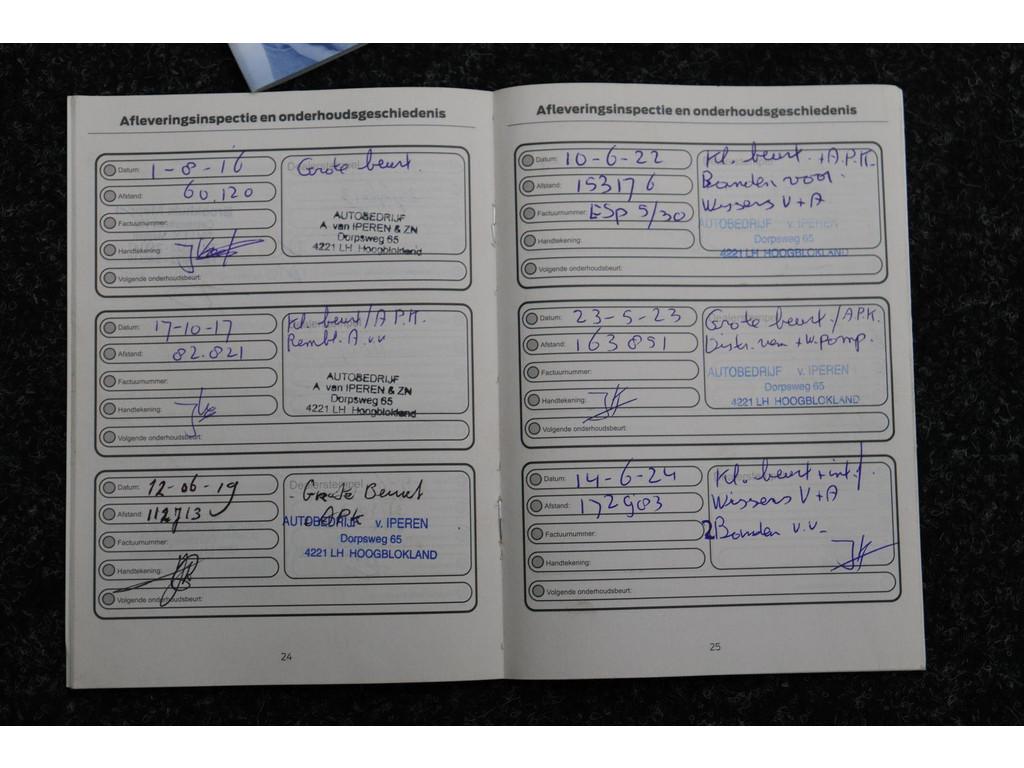 Afleveringsinspectie en onderhoudsgeschiedenis
Datum: 1-8-16
Grote beurt.
Afstand: 60.120
Factuurnummer:
Handtekening:
AUTOBEDRIJF
A van IPEREN & ZN
Dorpsweg 65
4221 LH Hoogblokland
Volgende onderhoudsbeurt:
Datum: 17-10-17
Kl. beurt / A.P.K.
Afstand: 82.821
Rembl. A. v.v
Factuurnummer:
Handtekening:
AUTOBEDRIJF
A van IPEREN & ZN
Dorpsweg 65
4221 LH Hoogblokland
Volgende onderhoudsbeurt:
Datum: 12-06-19
Dealerstempel
- Grote Beurt
Afstand: 112713
- APK
Factuurnummer:
Handtekening:
AUTOBEDRIJF v. IPEREN
Dorpsweg 65
4221 LH HOOGBLOKLAND
Volgende onderhoudsbeurt:
24
Afleveringsinspectie en onderhoudsgeschiedenis
Datum: 10-6-22
Kl. beurt. + A.P.K.
Afstand: 153176
Banden voor.
Factuurnummer: ESP 5/30
Wissers V + A
Handtekening:
AUTOBEDRIJF v. IPEREN
Dorpsweg 65
4221 LH HOOGBLOKLAND
Volgende onderhoudsbeurt:
Datum: 23-5-23
Grote beurt / APK.
Afstand: 163851
Distr. riem + W. pomp.
Factuurnummer:
Handtekening:
AUTOBEDRIJF v. IPEREN
Dorpsweg 65
4221 LH HOOGBLOKLAND
Volgende onderhoudsbeurt:
Datum: 14-6-24
Kl. beurt + int.
Afstand: 172903
Wissers V + A
Factuurnummer:
2 Banden v.v.
Handtekening:
Volgende onderhoudsbeurt:
25